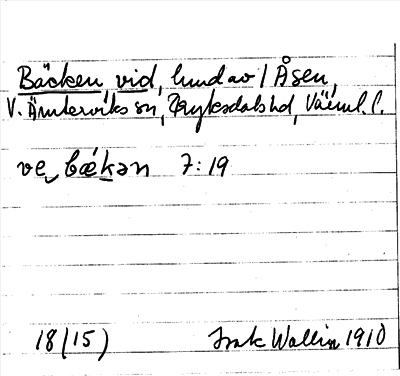 Bäcken vid, lund av / Åsen,
V. Ämterviks sn, Fryksdals hd, Värml. l.
ve bækən 7:19
18 (15) Isak Wallin 1910